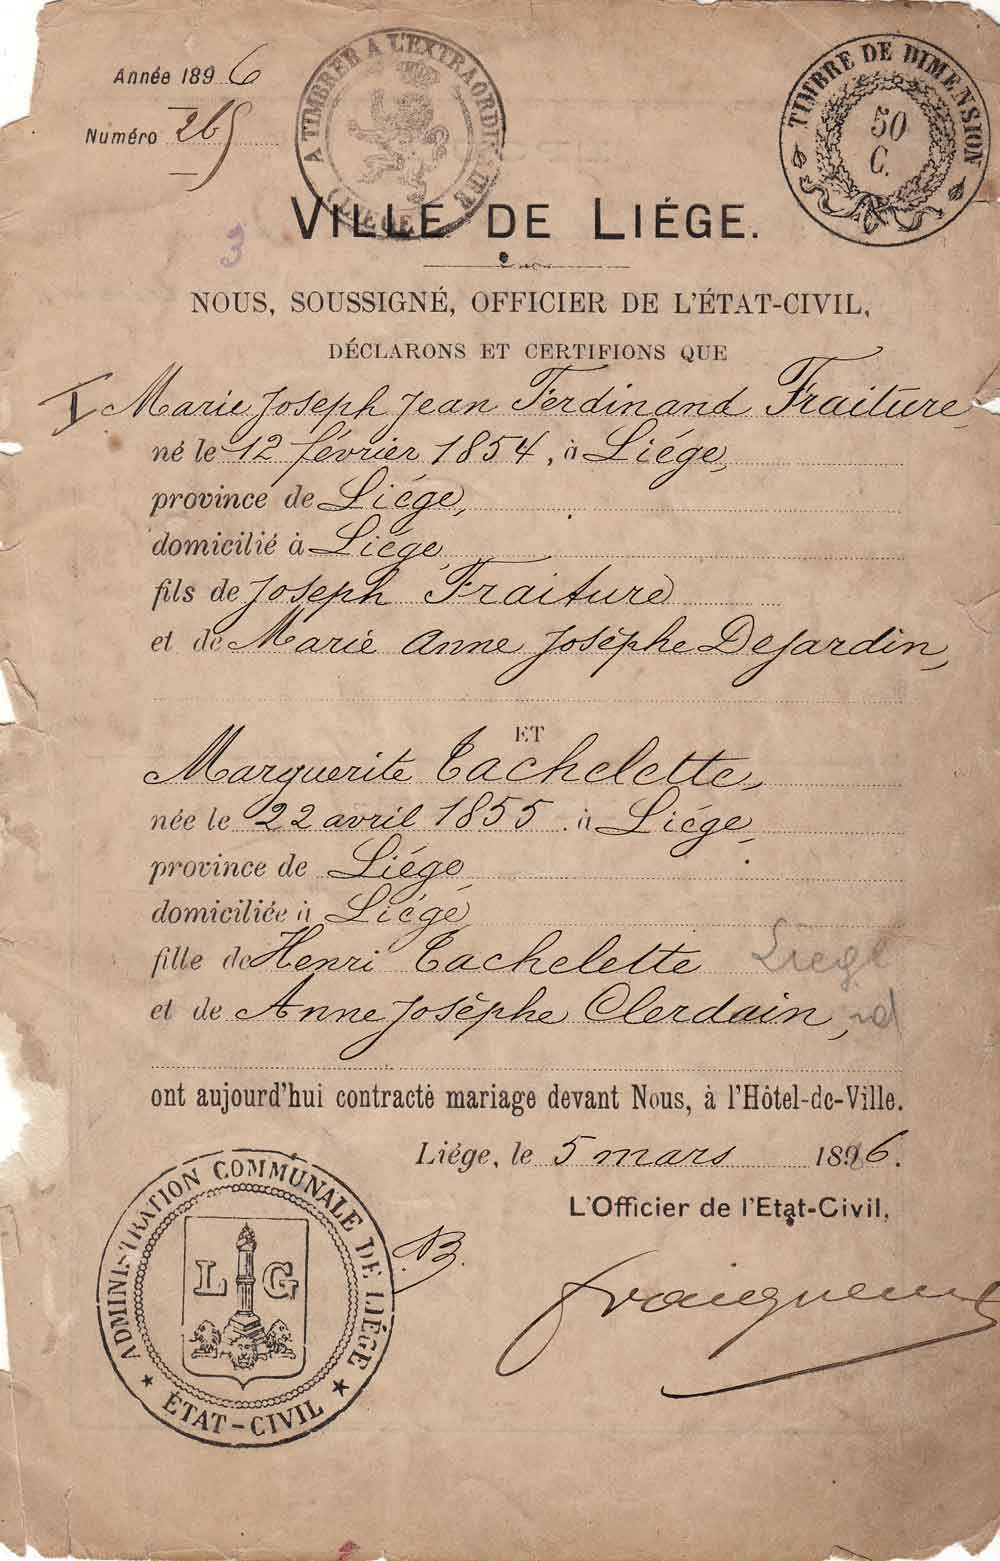 Année 1896
Numéro 265
A TIMBRER A L'EXTRAORDINAIRE
LIEGE
TIMBRE DE DIMENSION
50
C.
3
VILLE DE LIÉGE.
NOUS, SOUSSIGNÉ, OFFICIER DE L'ÉTAT-CIVIL,
DÉCLARONS ET CERTIFIONS QUE
I. Marie Joseph Jean Ferdinand Fraiture,
né le 12 février 1854, à Liége,
province de Liége,
domicilié à Liége,
fils de Joseph Fraiture
et de Marie Anne Josèphe Dejardin,
ET
Marguerite Tachelette,
née le 22 avril 1855. à Liége,
province de Liége,
domiciliée à Liége,
fille de Henri Tachelette Liege
et de Anne Josèphe Clerdain,
ont aujourd'hui contracté mariage devant Nous, à l'Hôtel-de-Ville.
Liége, le 5 mars 1896.
L'Officier de l'Etat-Civil,
B.
ADMINISTRATION COMMUNALE DE LIÉGE
L G
ÉTAT-CIVIL